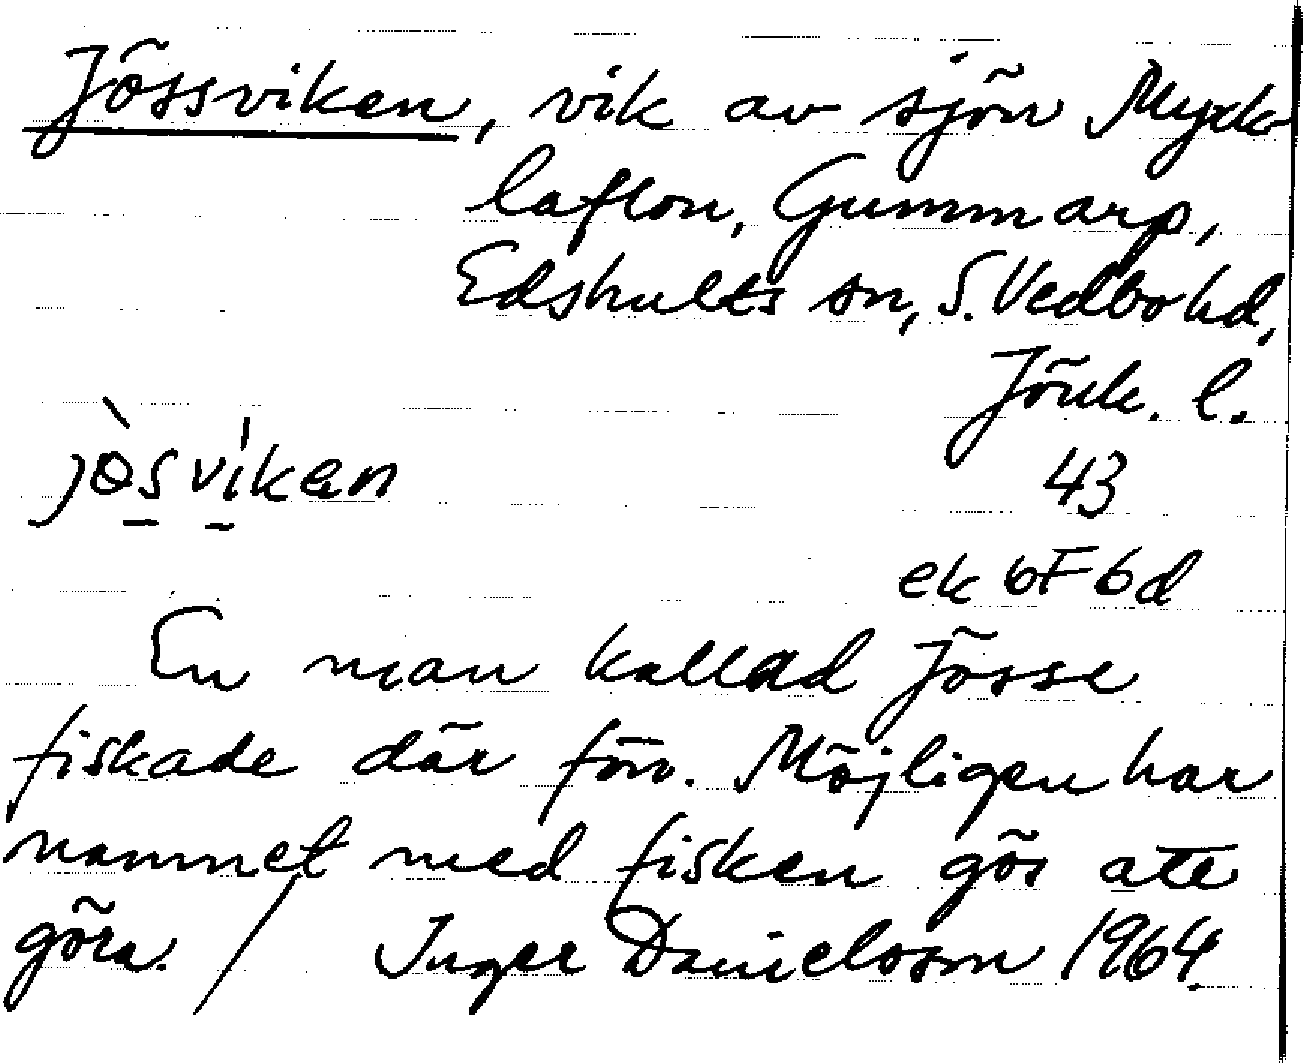 Jössviken, vik av sjön Myck-
laflon, Gummarp,
Edshults sn, S. Vedbo hd,
Jönk. l.
jɵ̀svìken
43
ek 6F6d
En man kallad Jösse
fiskade där förr. Möjligen har
namnet med fisken gös att
göra. / Inger Danielsson 1964.